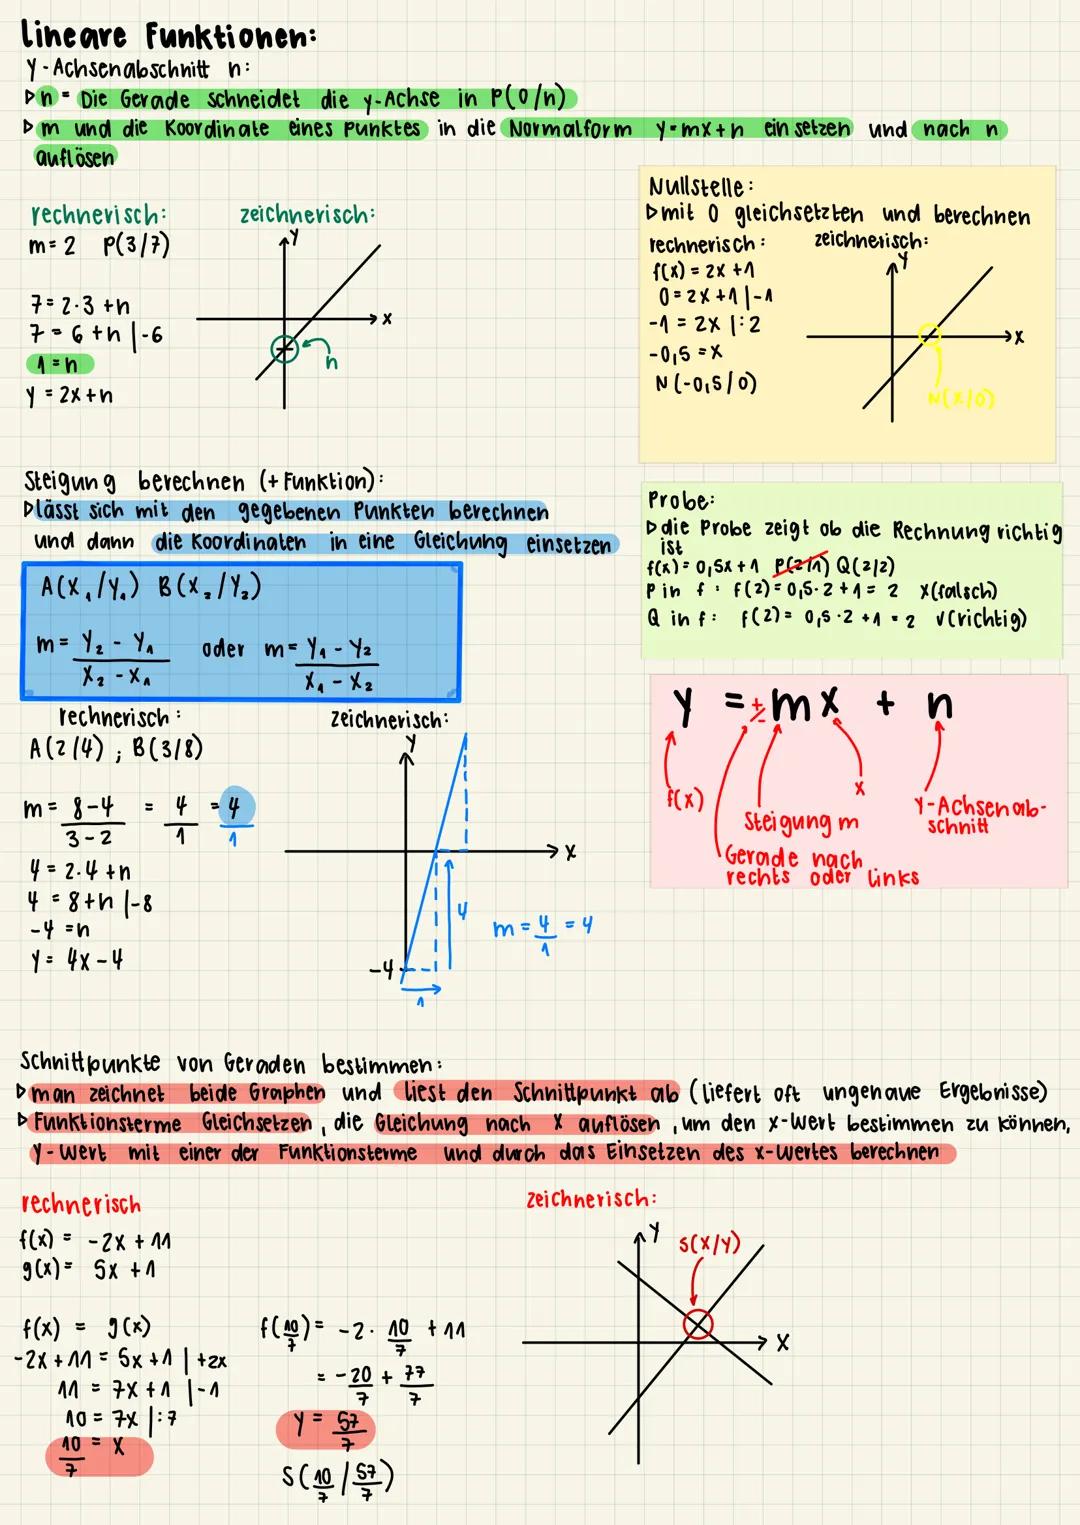 Lineare Funktionen:
y-Achsenabschnitt n:
▷ n = Die Gerade schneidet die y-Achse in P(0/n)
▷ m und die Koordinate eines Punktes in die Normalform y=mx+n einsetzen und nach n
auflösen
rechnerisch:
m=2 P(3/7)
7=2·3+n
7=6+n |-6
1=n
y=2x+n
zeichnerisch:
y
x
n
Nullstelle:
▷ mit 0 gleichsetzten und berechnen
rechnerisch:
f(x)=2x+1
0=2x+1 |-1
-1=2x |:2
-0,5=x
N(-0,5/0)
zeichnerisch:
y
x
N(x/0)
Steigung berechnen (+Funktion):
▷ lässt sich mit den gegebenen Punkten berechnen
und dann die Koordinaten in eine Gleichung einsetzen
A(x₁/y₁) B(x₂/y₂)
m= y₂-y₁ / x₂-x₁ oder m= y₁-y₂ / x₁-x₂
rechnerisch:
A(2/4); B(3/8)
m= 8-4 / 3-2 = 4/1 = 4/1
4=2·4+n
4=8+n |-8
-4=n
y=4x-4
zeichnerisch:
y
x
4
m=4/1=4
-4
1
Probe:
▷ die Probe zeigt ob die Rechnung richtig
ist
f(x)=0,5x+1 P(2/1) Q(2/2)
P in f: f(2)=0,5·2+1=2 x(falsch)
Q in f: f(2)=0,5·2+1=2 √(richtig)
y = ± mx + n
f(x)
Steigung m
x
y-Achsenab-
schnitt
Gerade nach
rechts oder links
Schnittpunkte von Geraden bestimmen:
▷ man zeichnet beide Graphen und liest den Schnittpunkt ab (liefert oft ungenaue Ergebnisse)
▷ Funktionsterme Gleichsetzen, die Gleichung nach x auflösen, um den x-Wert bestimmen zu können,
y-Wert mit einer der Funktionsterme und durch das Einsetzen des x-Wertes berechnen
rechnerisch
f(x) = -2x+11
g(x) = 5x+1
f(x) = g(x)
-2x+11=5x+1 |+2x
11=7x+1 |-1
10=7x |:7
10/7=x
f(10/7)=-2·10/7+11
=-20/7+77/7
y=57/7
S(10/7 / 57/7)
zeichnerisch:
y
S(x/y)
x